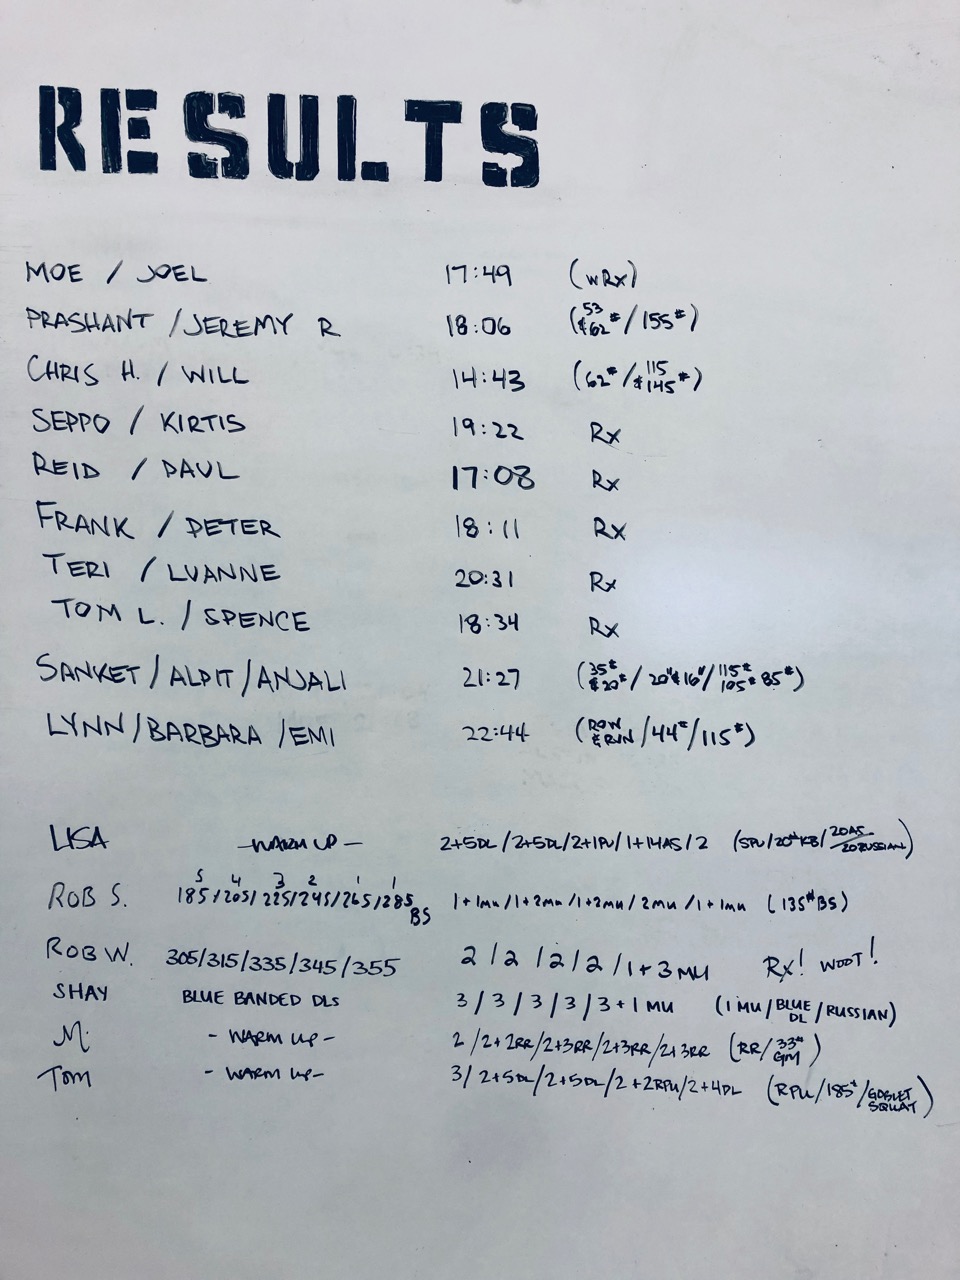 RESULTS
MOE / JOEL 17:49 (WRx)
PRASHANT / JEREMY R 18:06 (53 & 62# / 155#)
CHRIS H. / WILL 14:43 (62# / 115 & 145#)
SEPPO / KIRTIS 19:22 Rx
REID / PAUL 17:08 Rx
FRANK / PETER 18:11 Rx
TERI / LUANNE 20:31 Rx
TOM L. / SPENCE 18:34 Rx
SANKET / ALPIT / ANJALI 21:27 (35# & 20# / 20" & 16" / 115# 105# 85#)
LYNN / BARBARA / EMI 22:44 (ROW & RUN / 44# / 115#)
LISA - WARM UP - 2+5DL / 2+5DL / 2+1PU / 1+14AS / 2 (SPU / 20# KB / 20AS / 20 RUSSIAN)
5 4 3 2 1 1
ROB S. 185 / 205 / 225 / 245 / 265 / 285 BS 1+1MU / 1+2MU / 1+2MU / 2MU / 1+1MU (135# BS)
ROB W. 305/315/335/345/355 2 / 2 / 2 / 2 / 1+3 MU Rx! WOOT!
SHAY BLUE BANDED DLS 3 / 3 / 3 / 3 / 3+1 MU (1 MU / BLUE DL / RUSSIAN)
M. - WARM UP - 2 / 2+2RR / 2+3RR / 2+3RR / 2+3RR (RR / 33# GM)
TOM - WARM UP - 3 / 2+5DL / 2+5DL / 2+2RPU / 2+4DL (RPU / 185# / GOBLET SQUAT)